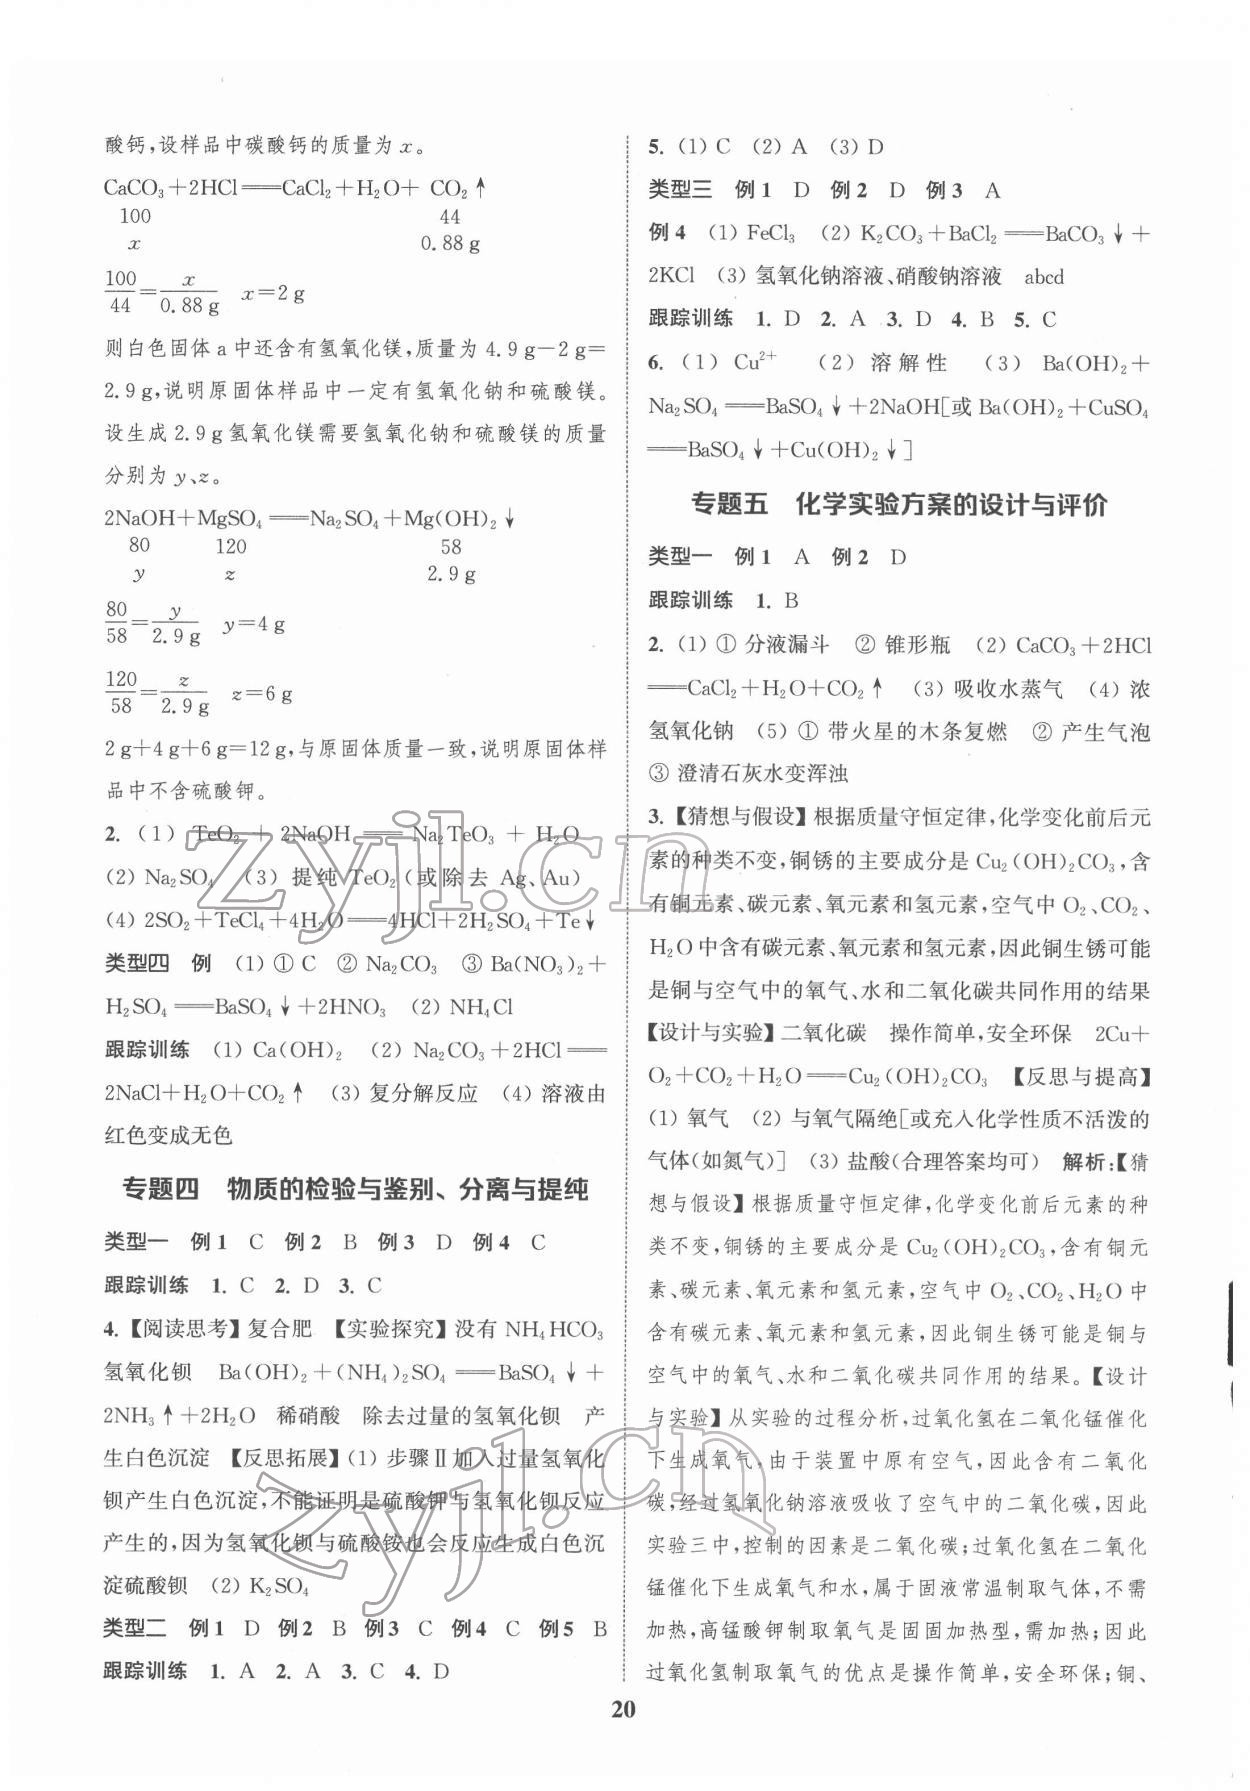 酸钙,设样品中碳酸钙的质量为 x。
CaCO₃+2HCl══CaCl₂+H₂O+ CO₂↑
100 44
x 0.88 g
100/44=x/0.88 g x=2 g
则白色固体 a 中还含有氢氧化镁,质量为 4.9 g-2 g=
2.9 g,说明原固体样品中一定有氢氧化钠和硫酸镁。
设生成 2.9 g 氢氧化镁需要氢氧化钠和硫酸镁的质量
分别为 y、z。
2NaOH+MgSO₄══Na₂SO₄+Mg(OH)₂↓
80 120 58
y z 2.9 g
80/58=y/2.9 g y=4 g
120/58=z/2.9 g z=6 g
2 g+4 g+6 g=12 g,与原固体质量一致,说明原固体样
品中不含硫酸钾。
2. (1) TeO₂ + 2NaOH ══ Na₂TeO₃ + H₂O
(2) Na₂SO₄ (3) 提纯 TeO₂(或除去 Ag、Au)
(4) 2SO₂+TeCl₄+4H₂O══4HCl+2H₂SO₄+Te↓
类型四 例 (1) ① C ② Na₂CO₃ ③ Ba(NO₃)₂+
H₂SO₄══BaSO₄↓+2HNO₃ (2) NH₄Cl
跟踪训练 (1) Ca(OH)₂ (2) Na₂CO₃+2HCl══
2NaCl+H₂O+CO₂↑ (3) 复分解反应 (4) 溶液由
红色变成无色
专题四 物质的检验与鉴别、分离与提纯
类型一 例1 C 例2 B 例3 D 例4 C
跟踪训练 1. C 2. D 3. C
4.【阅读思考】复合肥 【实验探究】没有 NH₄HCO₃
氢氧化钡 Ba(OH)₂+(NH₄)₂SO₄══BaSO₄↓+
2NH₃↑+2H₂O 稀硝酸 除去过量的氢氧化钡 产
生白色沉淀 【反思拓展】(1) 步骤Ⅱ加入过量氢氧化
钡产生白色沉淀,不能证明是硫酸钾与氢氧化钡反应
产生的,因为氢氧化钡与硫酸铵也会反应生成白色沉
淀硫酸钡 (2) K₂SO₄
类型二 例1 D 例2 B 例3 C 例4 C 例5 B
跟踪训练 1. A 2. A 3. C 4. D
5. (1) C (2) A (3) D
类型三 例1 D 例2 D 例3 A
例4 (1) FeCl₃ (2) K₂CO₃+BaCl₂══BaCO₃↓+
2KCl (3) 氢氧化钠溶液、硝酸钠溶液 abcd
跟踪训练 1. D 2. A 3. D 4. B 5. C
6. (1) Cu²⁺ (2) 溶解性 (3) Ba(OH)₂+
Na₂SO₄══BaSO₄↓+2NaOH[或 Ba(OH)₂+CuSO₄
══BaSO₄↓+Cu(OH)₂↓]
专题五 化学实验方案的设计与评价
类型一 例1 A 例2 D
跟踪训练 1. B
2. (1) ① 分液漏斗 ② 锥形瓶 (2) CaCO₃+2HCl
══CaCl₂+H₂O+CO₂↑ (3) 吸收水蒸气 (4) 浓
氢氧化钠 (5) ① 带火星的木条复燃 ② 产生气泡
③ 澄清石灰水变浑浊
3.【猜想与假设】根据质量守恒定律,化学变化前后元
素的种类不变,铜锈的主要成分是 Cu₂(OH)₂CO₃,含
有铜元素、碳元素、氧元素和氢元素,空气中 O₂、CO₂、
H₂O 中含有碳元素、氧元素和氢元素,因此铜生锈可能
是铜与空气中的氧气、水和二氧化碳共同作用的结果
【设计与实验】二氧化碳 操作简单,安全环保 2Cu+
O₂+CO₂+H₂O══Cu₂(OH)₂CO₃ 【反思与提高】
(1) 氧气 (2) 与氧气隔绝[或充入化学性质不活泼的
气体(如氮气)] (3) 盐酸(合理答案均可) 解析:【猜
想与假设】根据质量守恒定律,化学变化前后元素的种
类不变,铜锈的主要成分是 Cu₂(OH)₂CO₃,含有铜元
素、碳元素、氧元素和氢元素,空气中 O₂、CO₂、H₂O 中
含有碳元素、氧元素和氢元素,因此铜生锈可能是铜与
空气中的氧气、水和二氧化碳共同作用的结果。【设计
与实验】从实验的过程分析,过氧化氢在二氧化锰催化
下生成氧气,由于装置中原有空气,因此含有二氧化
碳,经过氢氧化钠溶液吸收了空气中的二氧化碳,因此
实验三中,控制的因素是二氧化碳;过氧化氢在二氧化
锰催化下生成氧气和水,属于固液常温制取气体,不需
加热,高锰酸钾制取氧气是固固加热型,需加热;因此
过氧化氢制取氧气的优点是操作简单,安全环保;铜、
20
zyjl.cn
zyjl.cn